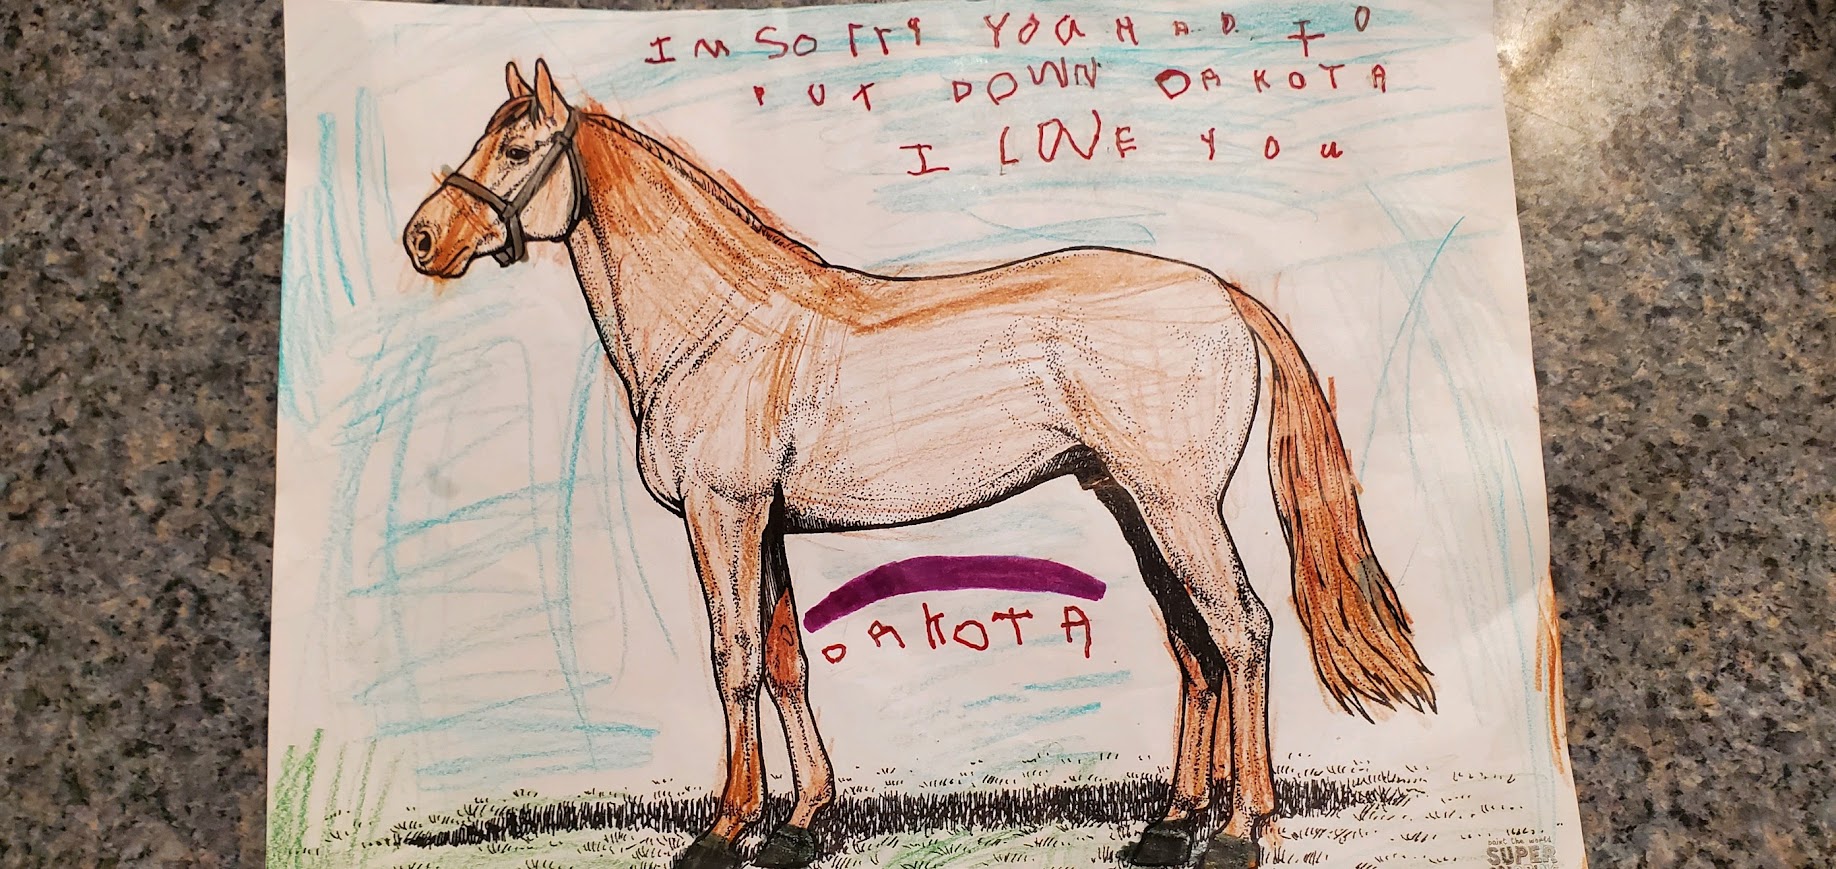 IM SOrrY YOU HAD TO
PUT DOWN DAKOTA
I LOVE YOu
DAKOTA
paint the world
SUPER